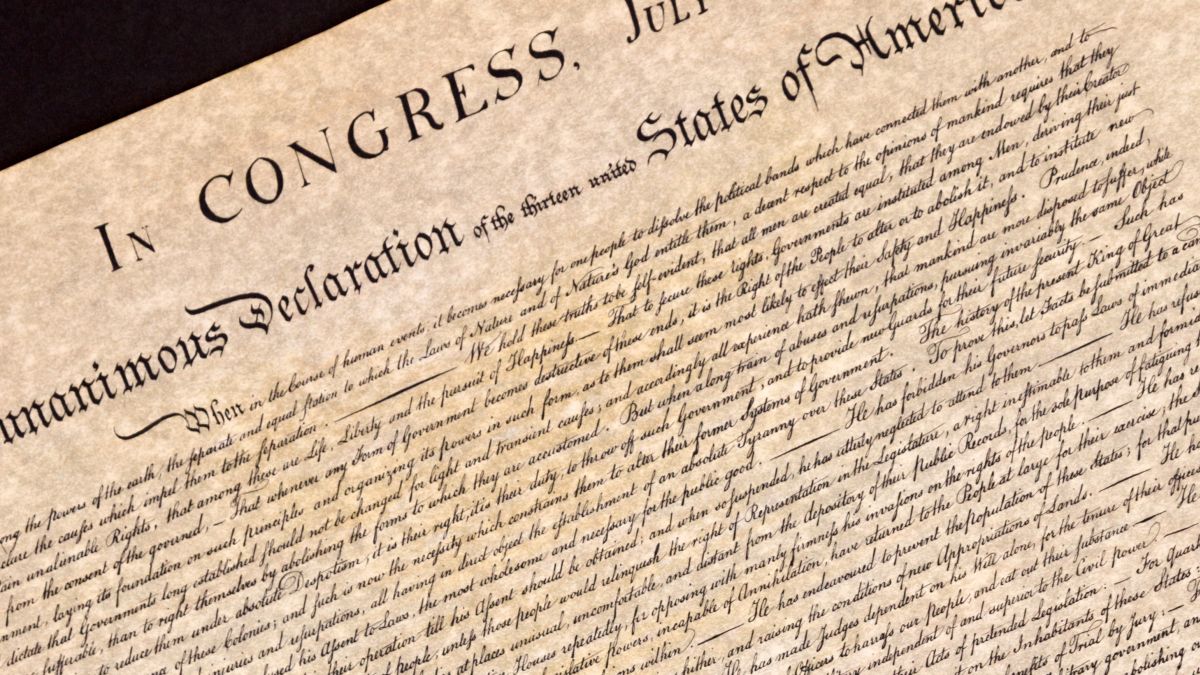 IN CONGRESS, JULY
unanimous Declaration of the thirteen united States of America
When in the Course of human events, it becomes necessary for one people to dissolve the political bands which have connected them with another, and to
ong the powers of the earth, the separate and equal station to which the Laws of Nature and of Nature's God entitle them, a decent respect to the opinions of mankind requires that they
clare the causes which impel them to the separation. —— We hold these truths to be self-evident, that all men are created equal, that they are endowed by their Creator
tain unalienable Rights, that among these are Life, Liberty and the pursuit of Happiness.— That to secure these rights, Governments are instituted among Men, deriving their just
from the consent of the governed, — That whenever any Form of Government becomes destructive of these ends, it is the Right of the People to alter or to abolish it, and to institute new
nment, laying its foundation on such principles and organizing its powers in such form, as to them shall seem most likely to effect their Safety and Happiness. Prudence, indeed,
dictate that Governments long established should not be changed for light and transient causes; and accordingly all experience hath shewn, that mankind are more disposed to suffer, while
sufferable, than to right themselves by abolishing the forms to which they are accustomed. But when a long train of abuses and usurpations, pursuing invariably the same Object
to reduce them under absolute Despotism, it is their right, it is their duty, to throw off such Government, and to provide new Guards for their future security.— Such has
of these Colonies; and such is now the necessity which constrains them to alter their former Systems of Government. The history of the present King of Great
injuries and usurpations, all having in direct object the establishment of an absolute Tyranny over these States. To prove this, let Facts be submitted to a can
used his Assent to Laws, the most wholesome and necessary for the public good. —— He has forbidden his Governors to pass Laws of immedia
their operation till his Assent should be obtained; and when so suspended, he has utterly neglected to attend to them. —— He has refus
of people, unless those people would relinquish the right of Representation in the Legislature, a right inestimable to them and formid
at places unusual, uncomfortable, and distant from the depository of their public Records, for the sole purpose of fatiguing
Houses repeatedly, for opposing with manly firmness his invasions on the rights of the people. —— He has
slative powers, incapable of Annihilation, have returned to the People at large for their exercise; the
ons within. —— He has endeavoured to prevent the population of these States; for that pu
hither, and raising the conditions of new Appropriations of Lands. —— He h
He has made Judges dependent on his Will alone, for the tenure of their offices
Officers to harrass our People, and eat out their substance. — He
independent of and superior to the Civil power —
their Acts of pretended Legislation: — For quar
on the Inhabitants of these States
benefits of Trial by Jury: —
bitrary government, an
abolishing